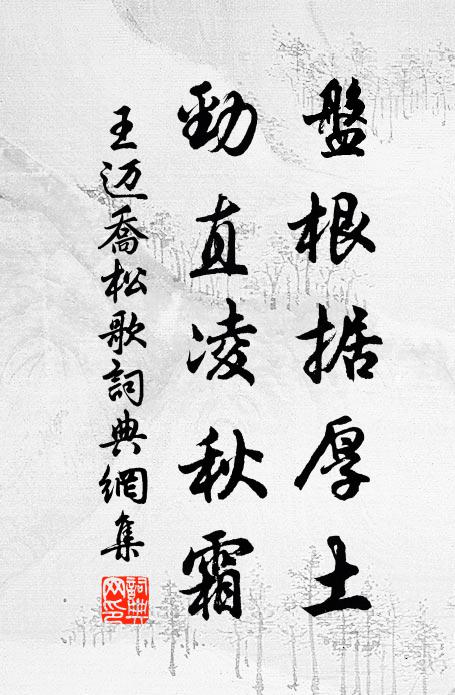 盤根据厚土
勁直凌秋霜
王迈喬松歌詞典網集
詞典網印